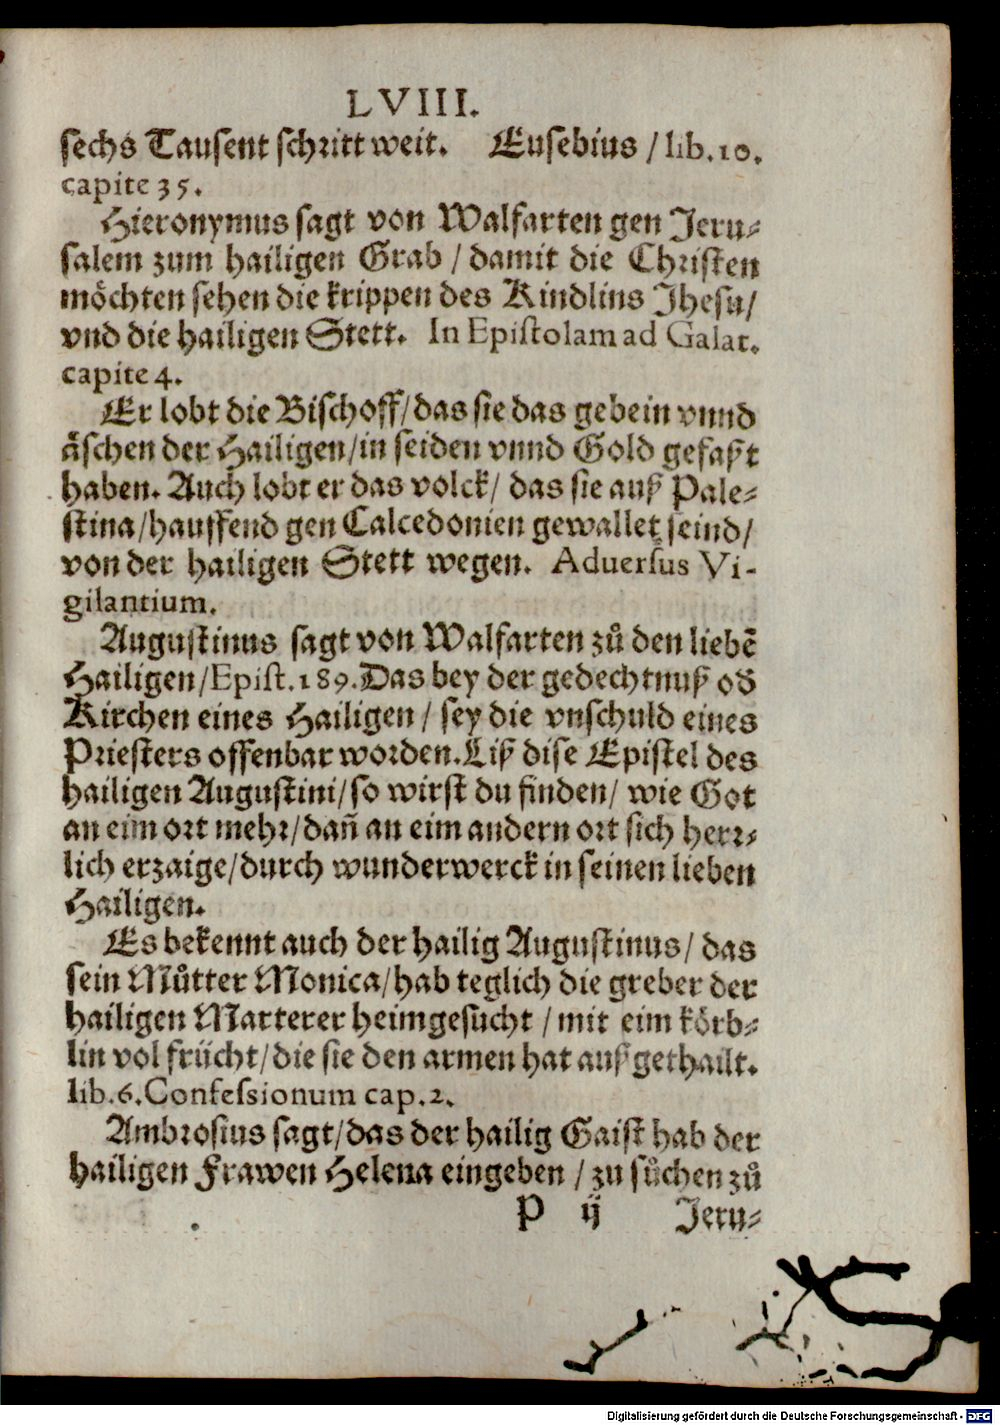 LVIII.
sechs Tausent schritt weit. Eusebius / lib. 10.
capite 35.
Hieronymus sagt von Walfarten gen Jeru-
salem zum hailigen Grab / damit die Christen
möchten sehen die krippen des Kindlins Jhesu /
vnd die hailigen Stett. In Epistolam ad Galat.
capite 4.
Er lobt die Bischoff / das sie das gebein vnnd
äschen der Hailigen / in seiden vnnd Gold gefaßt
haben. Auch lobt er das volck / das sie auß Pale-
stina / hauffend gen Calcedonien gewallet seind /
von der hailigen Stett wegen. Aduersus Vi-
gilantium.
Augustinus sagt von Walfarten zů den liebē
Hailigen / Epist. 189. Das bey der gedechtnuß od
Kirchen eines Hailigen / sey die vnschuld eines
Priesters offenbar worden. Liß dise Epistel des
hailigen Augustini / so wirst du finden / wie Got
an eim ort mehr / dañ an eim andern ort sich herr-
lich erzaige / durch wunderwerck in seinen lieben
Hailigen.
Es bekennt auch der hailig Augustinus / das
sein Můtter Monica / hab teglich die greber der
hailigen Marterer heimgesucht / mit eim körb-
lin vol frücht / die sie den armen hat außgethailt.
lib. 6. Confessionum cap. 2.
Ambrosius sagt / das der hailig Gaist hab der
hailigen Frawen Helena eingeben / zu sůchen zů
P ij Jeru-
Digitalisierung gefördert durch die Deutsche Forschungsgemeinschaft - DFG